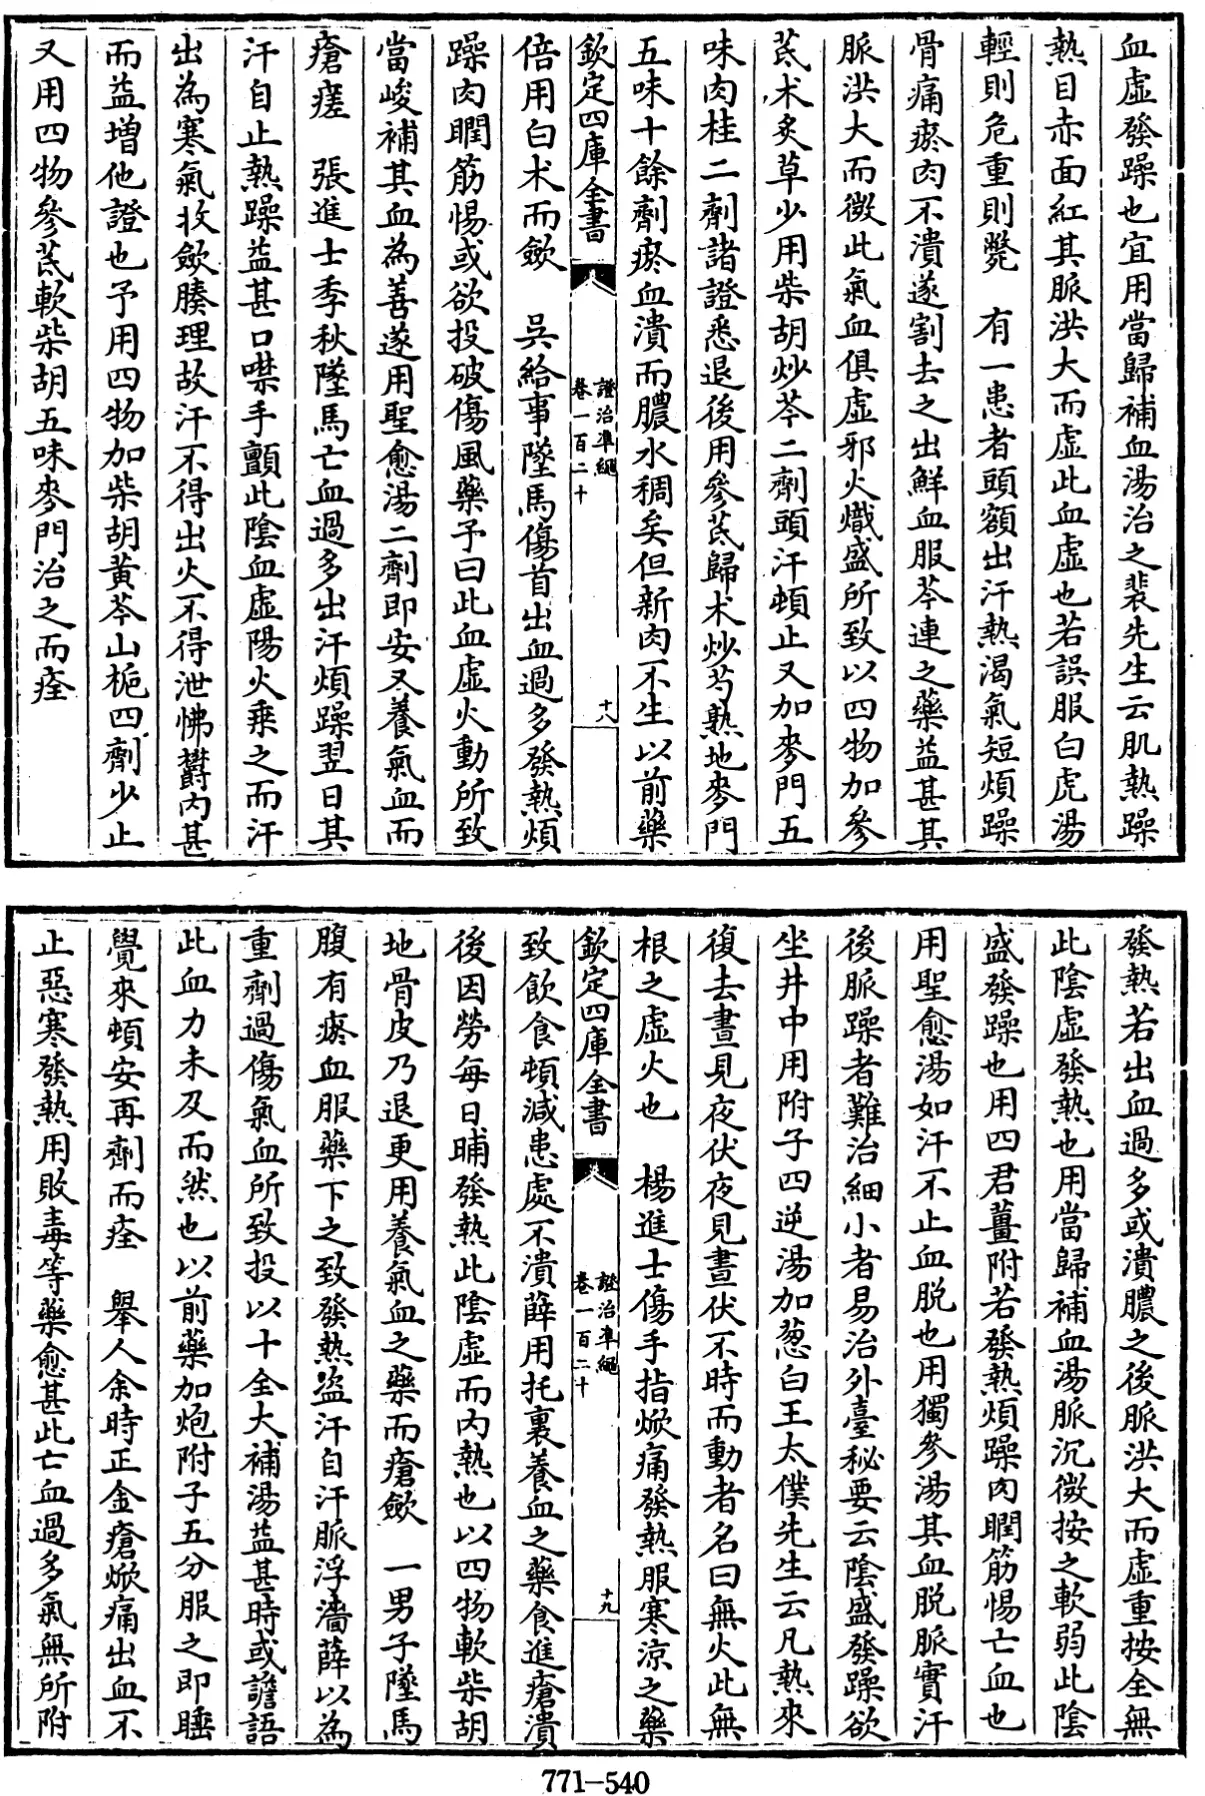 血虛發躁也宜用當歸補血湯治之裴先生云肌熱躁
熱目赤面紅其脈洪大而虛此血虛也若誤服白虎湯
輕則危重則斃　有一患者頭額出汗熱渴氣短煩躁
骨痛瘀肉不潰遂割去之出鮮血服芩連之藥益甚其
脈洪大而微此氣血俱虛邪火熾盛所致以四物加參
芪朮炙草少用柴胡炒芩二劑頭汗頓止又加麥門五
味肉桂二劑諸證悉退後用參芪歸朮炒芍熟地麥門
五味十餘劑瘀血潰而膿水稠矣但新肉不生以前藥
欽定四庫全書
證治準繩
卷一百二十
十八
倍用白朮而斂　吳給事墜馬傷首出血過多發熱煩
躁肉瞤筋惕或欲投破傷風藥予曰此血虛火動所致
當峻補其血為善遂用聖愈湯二劑即安又養氣血而
瘡瘥　張進士季秋墜馬亡血過多出汗煩躁翌日其
汗自止熱躁益甚口噤手顫此陰血虛陽火乘之而汗
出為寒氣收斂腠理故汗不得出火不得泄怫鬱內甚
而益增他證也予用四物加柴胡黃芩山梔四劑少止
又用四物參芪軟柴胡五味麥門治之而痊
發熱若出血過多或潰膿之後脈洪大而虛重按全無
此陰虛發熱也用當歸補血湯脈沉微按之軟弱此陰
盛發躁也用四君薑附若發熱煩躁肉瞤筋惕亡血也
用聖愈湯如汗不止血脫也用獨參湯其血脫脈實汗
後脈躁者難治細小者易治外臺秘要云陰盛發躁欲
坐井中用附子四逆湯加蔥白王太僕先生云凡熱來
復去晝見夜伏夜見晝伏不時而動者名曰無火此無
根之虛火也　楊進士傷手指焮痛發熱服寒涼之藥
欽定四庫全書
證治準繩
卷一百二十
十九
致飲食頓減患處不潰薛用托裏養血之藥食進瘡潰
後因勞每日晡發熱此陰虛而內熱也以四物軟柴胡
地骨皮乃退更用養氣血之藥而瘡斂　一男子墜馬
腹有瘀血服藥下之致發熱盜汗自汗脈浮濇薛以為
重劑過傷氣血所致投以十全大補湯益甚時或譫語
此血力未及而然也以前藥加炮附子五分服之即睡
覺來頓安再劑而痊　舉人余時正金瘡焮痛出血不
止惡寒發熱用敗毒等藥愈甚此亡血過多氣無所附
771-540